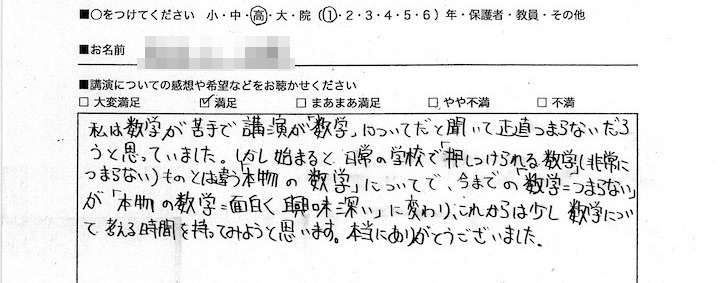 ■○をつけてください 小・中・高・大・院（1・2・3・4・5・6）年・保護者・教員・その他
■お名前
■講演についての感想や希望などをお聴かせください
□大変満足 ☑満足 □まあまあ満足 □やや不満 □不満
私は数学が苦手で講演が「数学」についてだと聞いて正直つまらないだろ
うと思っていました。しかし始まると、日常の学校で「押しつけられる数学」(非常に
つまらない)ものとは違う「本物の数学」についてで、今までの「数学=つまらない」
が「本物の数学=面白く興味深い」に変わり、これからは少し数学につい
て考える時間を持ってみようと思います。本当にありがとうございました。